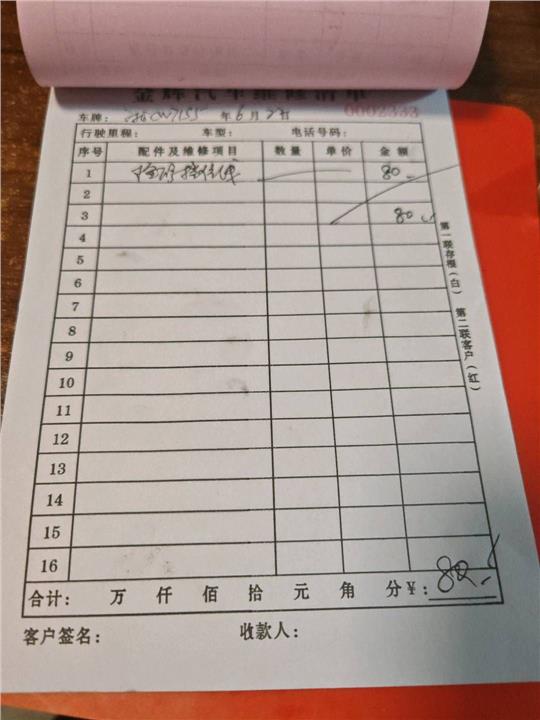 金辉汽车维修清单
车牌: 年6月2日 0002333
行驶里程: 车型: 电话号码:
序号 配件及维修项目 数量 单价 金额
1 80
2
3 80
4
5
6
7
8
9
10
11
12
13
14
15
16
合计: 万 仟 佰 拾 元 角 分 ¥: 80
客户签名: 收款人:
第一联存根(白) 第二联客户(红)